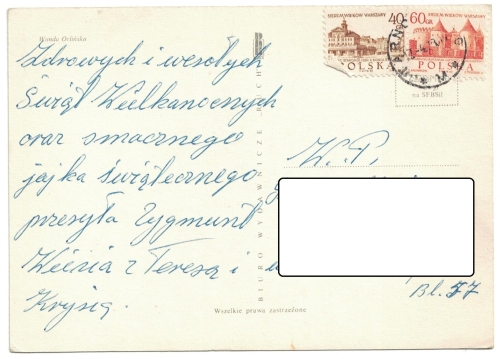 Wanda Orlińska
Zdrowych i wesołych
Świąt Wielkanocnych
oraz smacznego
jajka świątecznego
przesyła Zygmunt
z Teresą i
Krysią
BIURO WYDAWNICZE RUCH
Wszelkie prawa zastrzeżone
SIEDEM WIEKÓW WARSZAWY
40 GR
POLSKA
SIEDEM WIEKÓW WARSZAWY
60 GR
POLSKA
TARNÓ
na SFBSiI
W.P.
Bl. 57